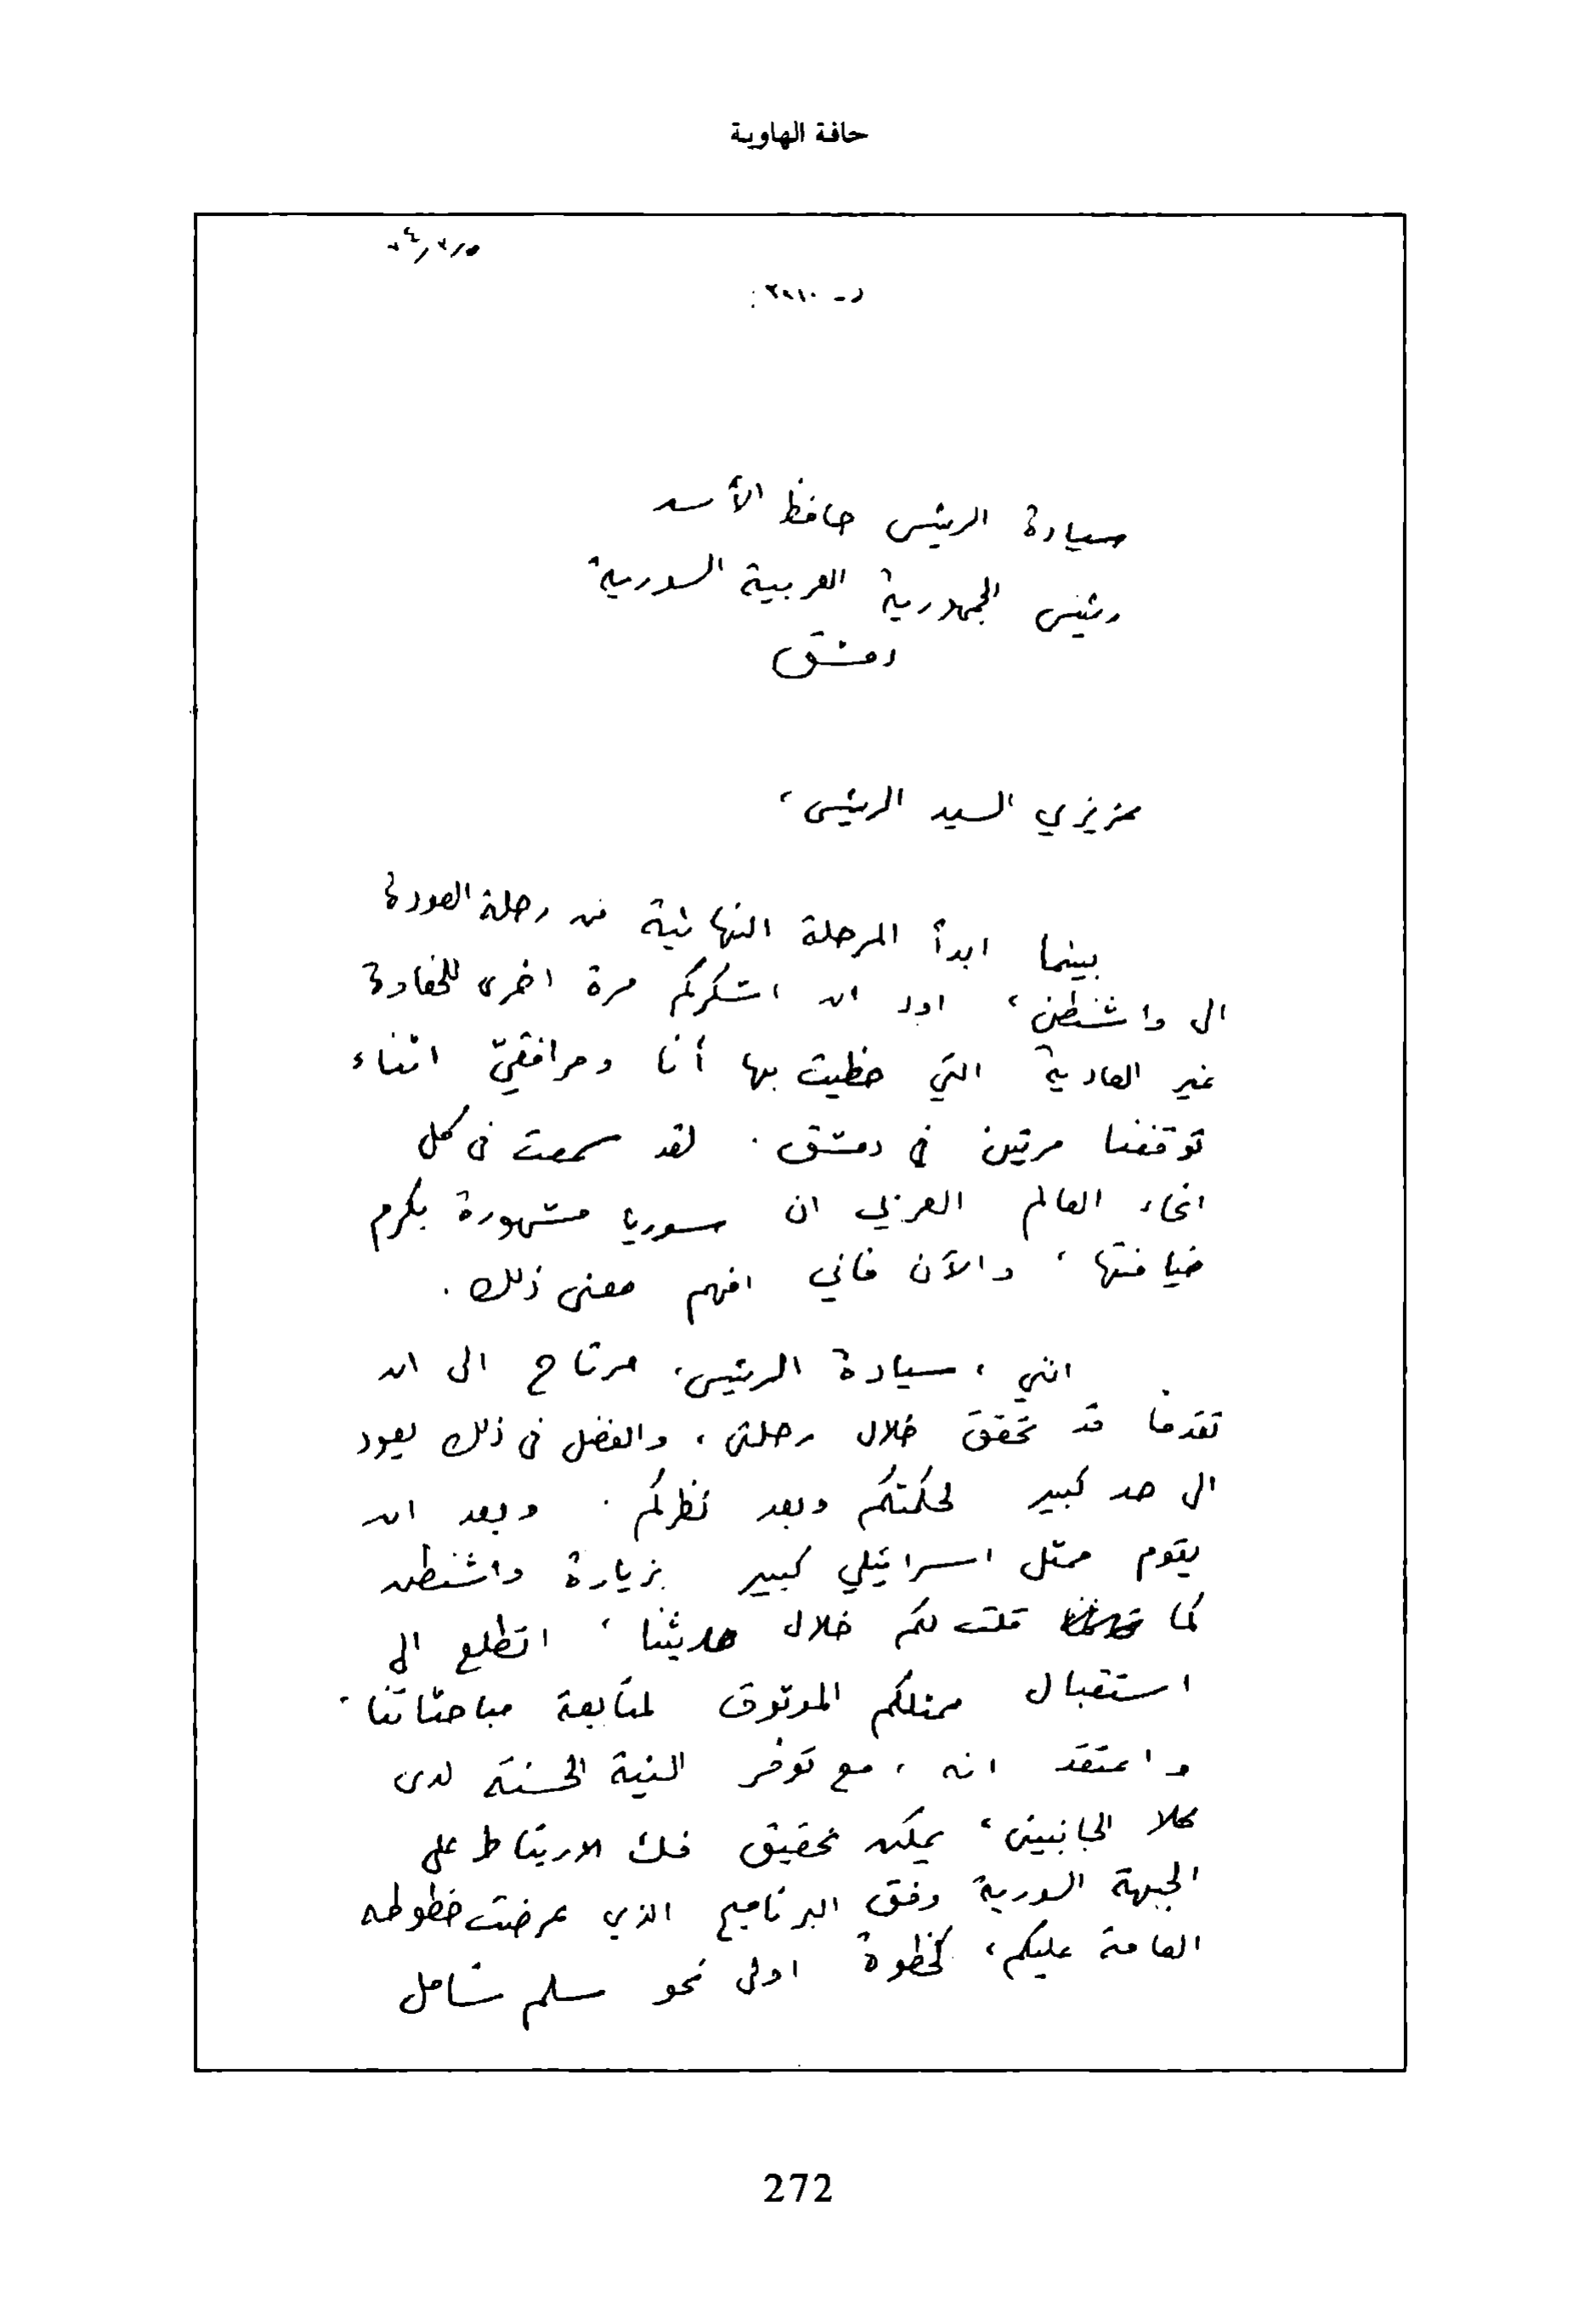 حافة الهاوية
سيادة الرئيس حافظ الأسد
رئيس الجمهورية العربية السورية
دمشق
عزيزي السيد الرئيس،
بينما ابدأ المرحلة النهائية من رحلة العودة
الى واشنطن، اود ان اشكركم مرة اخرى للحفاوة
غير العادية التي حظيت بها أنا ومرافقيّ اثناء
توقفنا مرتين في دمشق. لقد سمعت في كل
انحاء العالم العربي ان سوريا مشهورة بكرم
ضيافتها، والآن فاني افهم معنى ذلك.
انني، سيادة الرئيس، مرتاح الى ان
تقدما قد تحقق خلال رحلتي، والفضل في ذلك يعود
الى حد كبير لحكمتكم وبعد نظركم. وبعد ان
يقوم ممثل اسرائيلي كبير بزيارة واشنطن
كما قلت لكم خلال حديثنا، اتطلع الى
استقبال ممثلكم الموثوق لمتابعة مباحثاتنا.
واعتقد انه، مع توفر النية الحسنة لدى
كلا الجانبين، يمكن تحقيق فك الارتباط على
الجبهة السورية وفق البرنامج الذي عرضت خطوطه
العامة عليكم، كخطوة اولى نحو سلم شامل
272